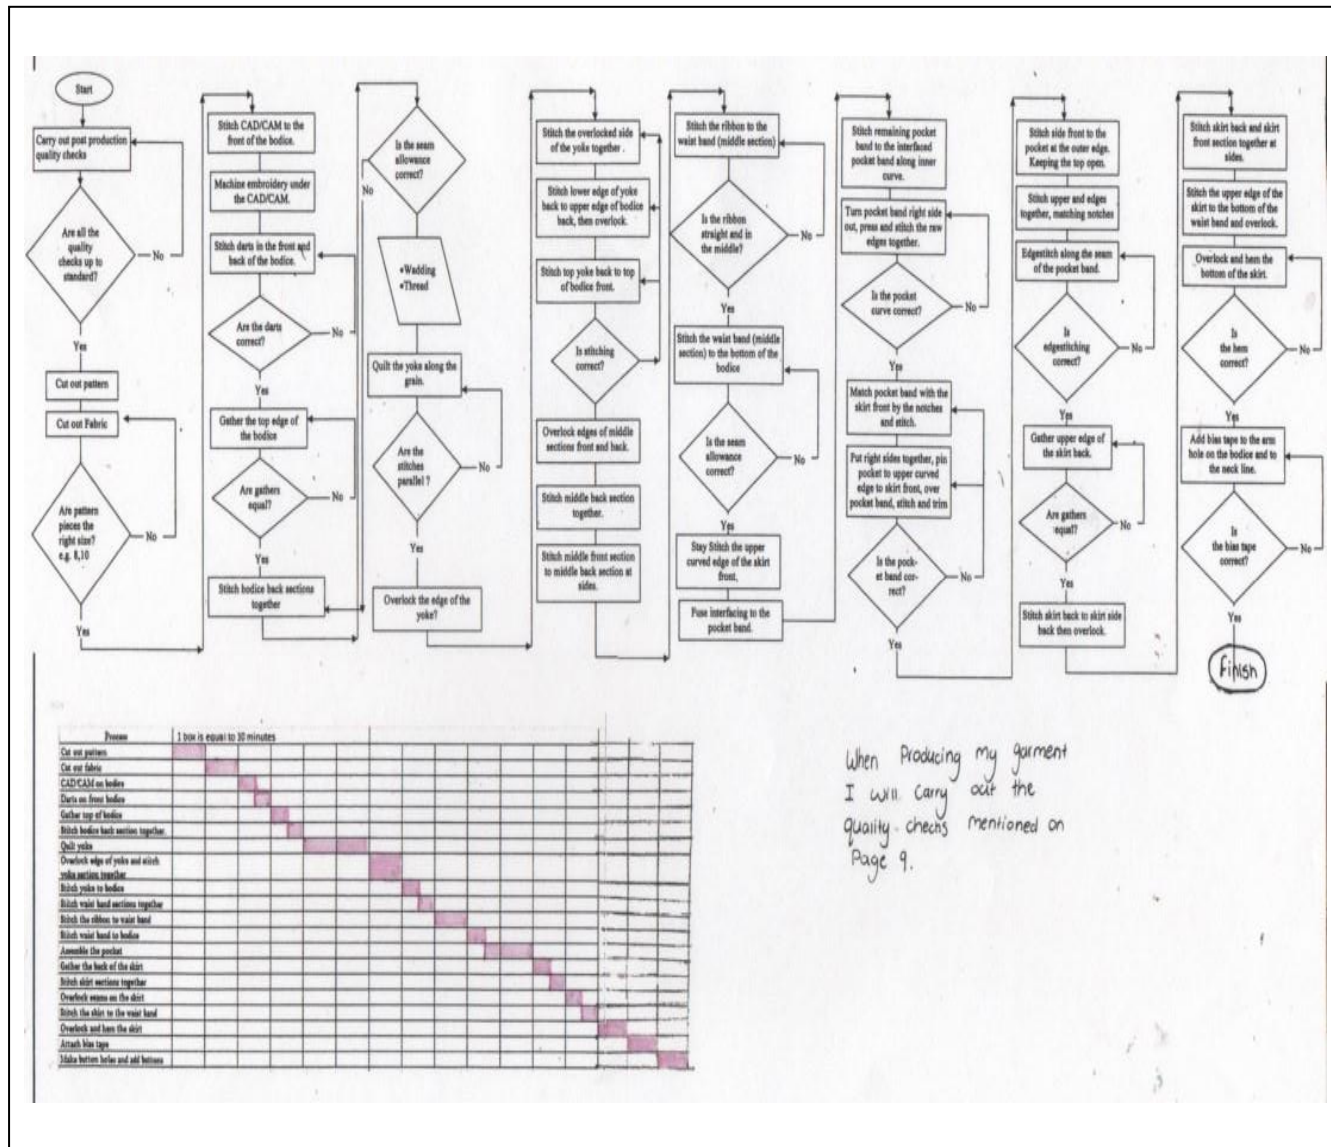 Start
Carry out post production
quality checks
Are all the
quality
checks up to
standard?
No
Yes
Cut out pattern
Cut out Fabric
Are pattern
pieces the
right size?
e.g. 8,10
No
Yes
Stitch CAD/CAM to the
front of the bodice.
Machine embroidery under
the CAD/CAM.
Stitch darts in the front and
back of the bodice.
Are the darts
correct?
No
Yes
Gather the top edge of
the bodice
Are gathers
equal?
No
Yes
Stitch bodice back sections
together
Is the seam
allowance
correct?
No
•Wadding
•Thread
Quilt the yoke along the
grain.
Are the
stitches
parallel ?
No
Yes
Overlock the edge of the
yoke?
Stitch the overlocked side
of the yoke together .
Stitch lower edge of yoke
back to upper edge of bodice
back, then overlock.
Stitch top yoke back to top
of bodice front.
Is stitching
correct?
Overlock edges of middle
sections front and back.
Stitch middle back section
together.
Stitch middle front section
to middle back section at
sides.
Stitch the ribbon to the
waist band (middle section)
Is the ribbon
straight and in
the middle?
No
Yes
Stitch the waist band (middle
section) to the bottom of the
bodice
Is the seam
allowance
correct?
No
Yes
Stay Stitch the upper
curved edge of the skirt
front,
Fuse interfacing to the
pocket band.
Stitch remaining pocket
band to the interfaced
pocket band along inner
curve.
Turn pocket band right side
out, press and stitch the raw
edges together.
Is the pocket
curve correct?
No
Yes
Match pocket band with the
skirt front by the notches
and stitch.
Put right sides together, pin
pocket to upper curved
edge to skirt front, over
pocket band, stitch and trim
Is the pock-
et band cor-
rect?
No
Yes
Stitch side front to the
pocket at the outer edge.
Keeping the top open.
Stitch upper and edges
together, matching notches
Edgestitch along the seam
of the pocket band.
Is
edgestitching
correct?
No
Yes
Gather upper edge of
the skirt back.
Are gathers
equal?
No
Yes
Stitch skirt back to skirt side
back then overlock.
Stitch skirt back and skirt
front section together at
sides.
Stitch the upper edge of the
skirt to the bottom of the
waist band and overlock.
Overlock and hem the
bottom of the skirt.
Is
the hem
correct?
No
Yes
Add bias tape to the arm
hole on the bodice and to
the neck line.
Is
the bias tape
correct?
No
Yes
Finish
Process
1 box is equal to 10 minutes
Cut out pattern
Cut out fabric
CAD/CAM on bodice
Darts on front bodice
Gather top of bodice
Stitch bodice back section together
Quilt yoke
Overlock edge of yoke and stitch
yoke section together
Stitch yoke to bodice
Stitch waist band sections together
Stitch the ribbon to waist band
Stitch waist band to bodice
Assemble the pocket
Gather the back of the skirt
Stitch skirt sections together
Overlock seams on the skirt
Stitch the skirt to the waist band
Overlock and hem the skirt
Attach bias tape
Make button holes and add buttons
When Producing my garment
I will carry out the
quality checks mentioned on
Page 9.